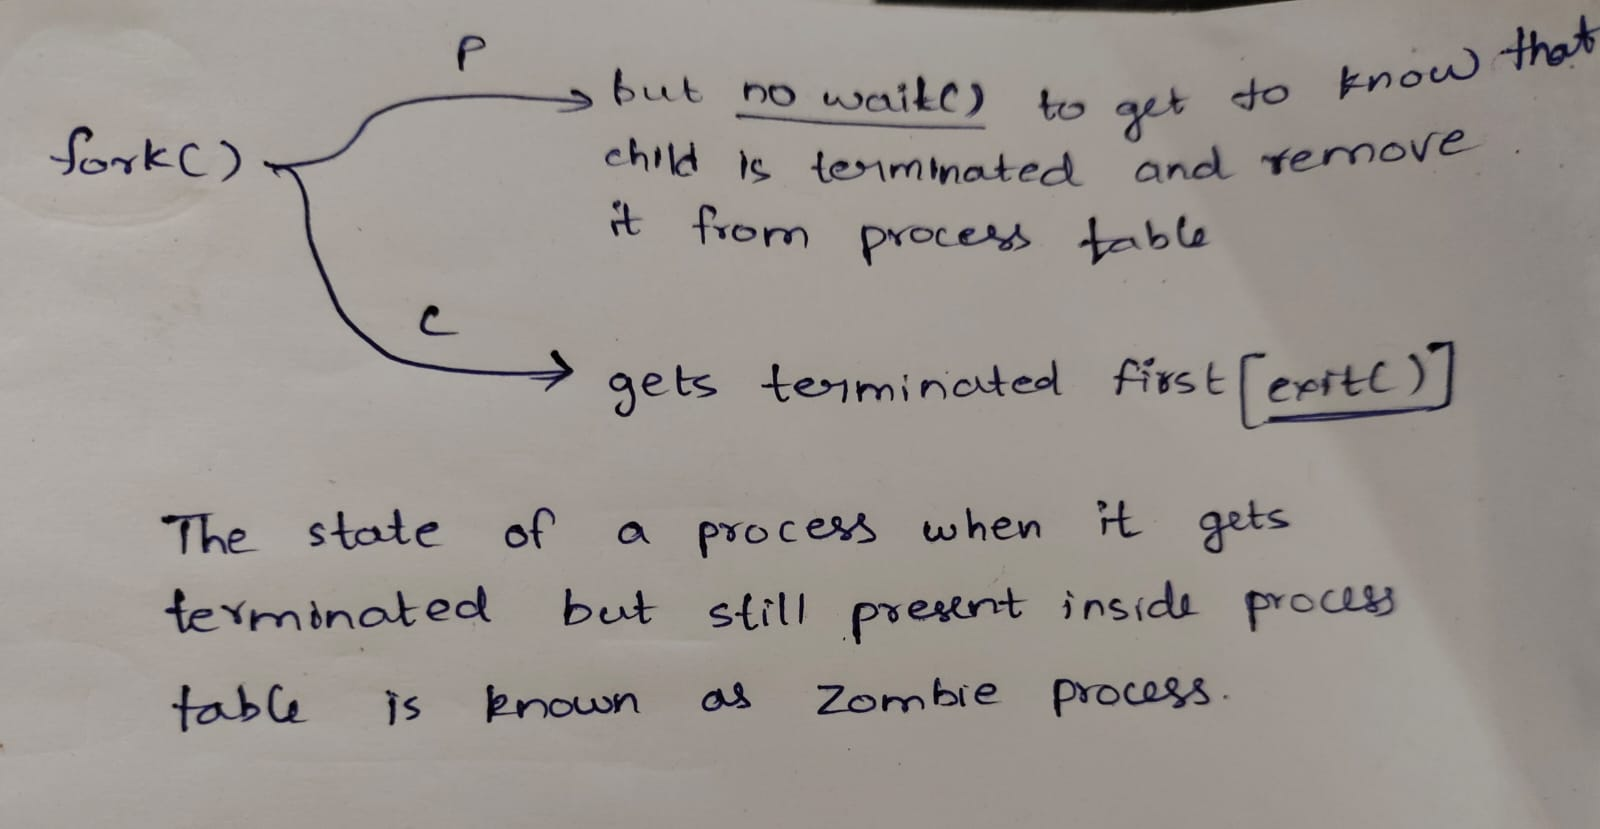 P
but no wait() to get to know that
fork()
child is terminated and remove
it from process table
C
gets terminated first [exit()]
The state of a process when it gets
terminated but still present inside process
table is known as Zombie process.